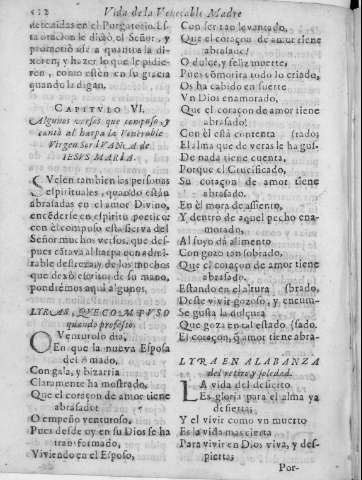 212 Vida de la Venerable Madre
detenidas en el Purgatorio. Es-
ta oracion le dictò el Señor, y
prometiò de a quantos la di-
xeren, y hazer lo que le pidie-
ren, como estèn en su gracia
quando la digan.
CAPITVLO VI.
Algunos versos que compuso, y
cantò al harpa la Venerable
Virgen Sor IVANA de
IESVS MARIA.
SVelen tambien las personas
espirituales, quando estàn
abrasadas en el amor Divino,
encēderse en espiritu poetico;
con el compuso esta sierva del
Señor muchos versos, que des-
pues cātava al harpa con admi-
rable destreza, y de los muchos
que dexò escritos de su mano,
pondrèmos aqui algunos.
LYRAS, QVE COMPVSO
quando professò.
O Venturoso dia,
En que la nueva Esposa
del Amado,
Con gala, y bizarria
Claramente ha mostrado,
Que el coraçon de amor tiene
abrasado!
O empeño venturoso,
Pues desde oy en su Dios se ha
transformado,
Viviendo en el Esposo,
Con ser tan levantado,
Que el coraçon de amor tiene
abrasado!
O dulce, y feliz muerte,
Pues cōmorir a todo lo criado,
Os ha cabido en suerte
Vn Dios enamorado,
Que el coraçon de amor tiene
abrasado!
Con èl està contenta (trado;
El alma que de veras le ha gus-
De nada tiene cuenta,
Porque el Crucificado,
Su coraçon de amor tiene
abrasado.
En èl mora de assiento,
Y dentro de aquel pecho ena-
morado,
Al suyo dà alimento
Con gozo tan sobrado,
Que el coraçon de amor tiene
abrasado.
Estando en el altura (brado,
Deste vivir gozoso, y encum-
Se gusta la dulçura
Que goza en tal estado (sado.
El coraçon, q̃ amor tiene abra-
LYRA EN ALABANZA
del retiro, y soledad.
LA vida del desierto
Es gloria para el alma ya
desierta;
Y el vivir como vn muerto
Es la vida mas cierta
Para vivir en Dios viva, y des-
pierta;
Por-